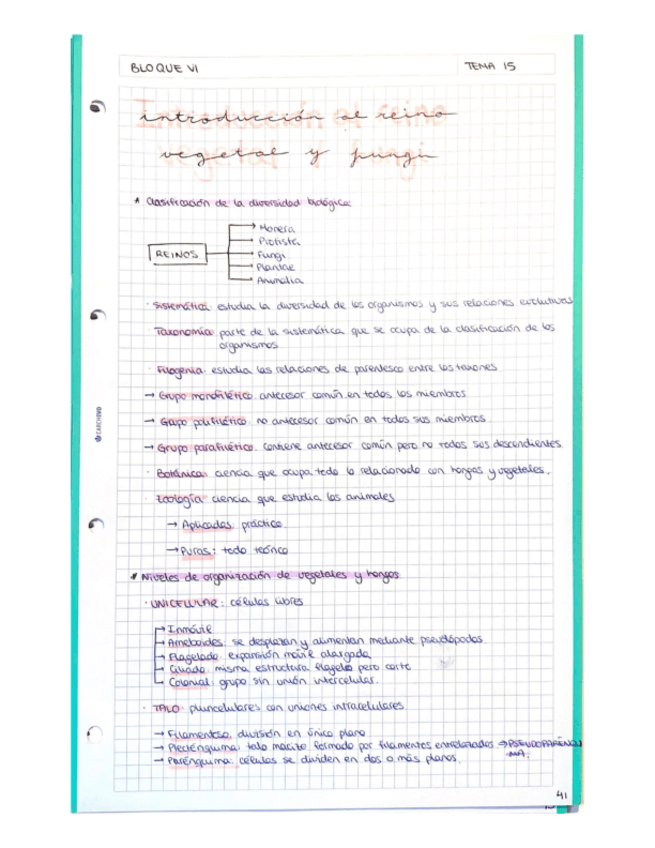 BLOQUE VI
TEMA 15
Introducción al reino
vegetal y fungi
* Clasificación de la diversidad biológica
REINOS
→ Monera
Protista
Fungi
Plantae
Animalia
· Sistemática: estudia la diversidad de los organismos y sus relaciones evolutivas
Taxonomía: parte de la sistemática que se ocupa de la clasificación de los
organismos
· Filogenia: estudia las relaciones de parentesco entre los taxones.
→ Grupo monofilético: antecesor común en todos los miembros
→ Grupo polifilético: no antecesor común en todos sus miembros.
→ Grupo parafilético: contiene antecesor común pero no todos sus descendientes.
· Botánica: ciencia que ocupa todo lo relacionado con hongos y vegetales.
· Zoología: ciencia que estudia los animales
→ Aplicadas: práctico
→ Puras: todo teórico
* Niveles de organización de vegetales y hongos
· UNICELULAR: células libres
→ Inmóvil
→ Ameboides: se desplazan y alimentan mediante pseudópodos.
→ Flagelado: expansión móvil alargada
→ Ciliado: misma estructura flagelo pero corto
→ Colonial: grupo sin unión intercelular.
· TALO: pluricelulares con uniones intracelulares
→ Filamentoso: división en único plano
→ Plecténquima: talo macizo formado por filamentos enrrelazados → PSEUDOPARÉNQUI
MA.
→ Parénquima: células se dividen en dos o más planos.
41